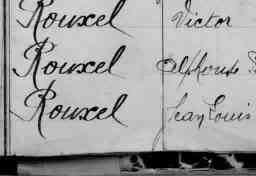 Rouxel Victor
Rouxel Alphonse
Rouxel Jean Louis